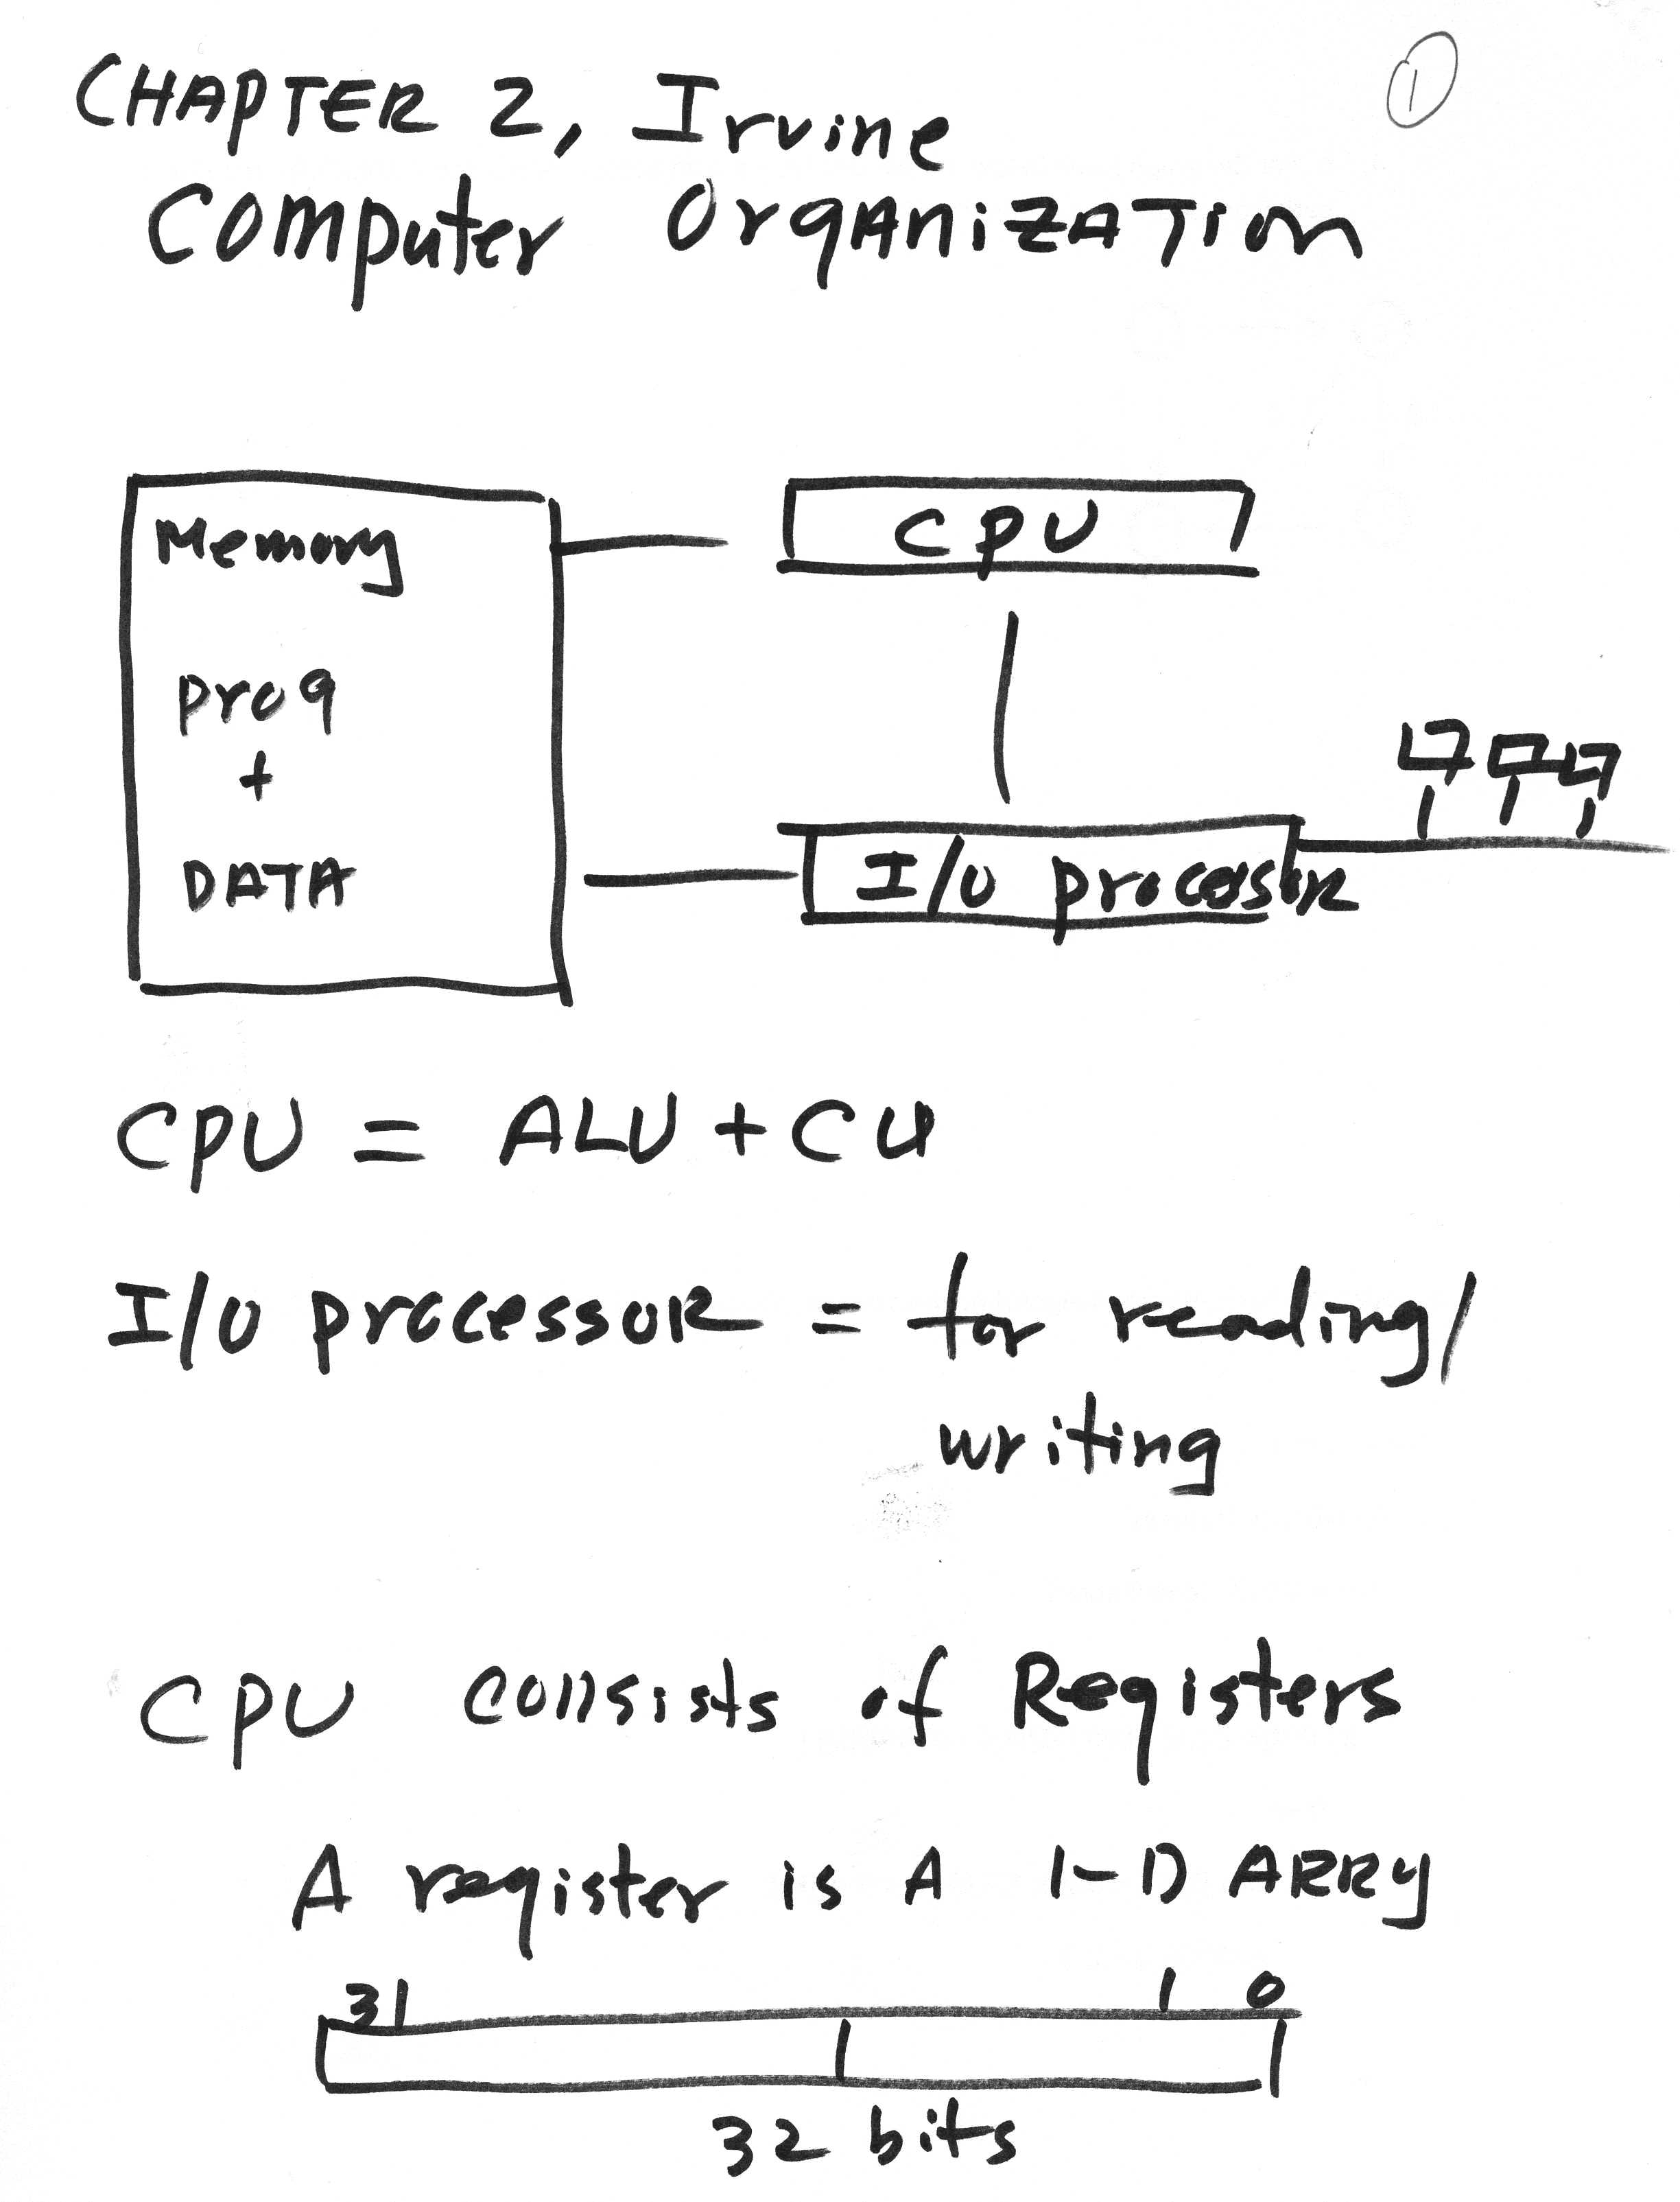 1
CHAPTER 2, Irvine
Computer Organization
Memory
CPU
prog
+
DATA
I/O processor
CPU = ALU + CU
I/O processor = for reading/
writing
CPU consists of Registers
A register is A 1-D ARRY
31 1 0
32 bits